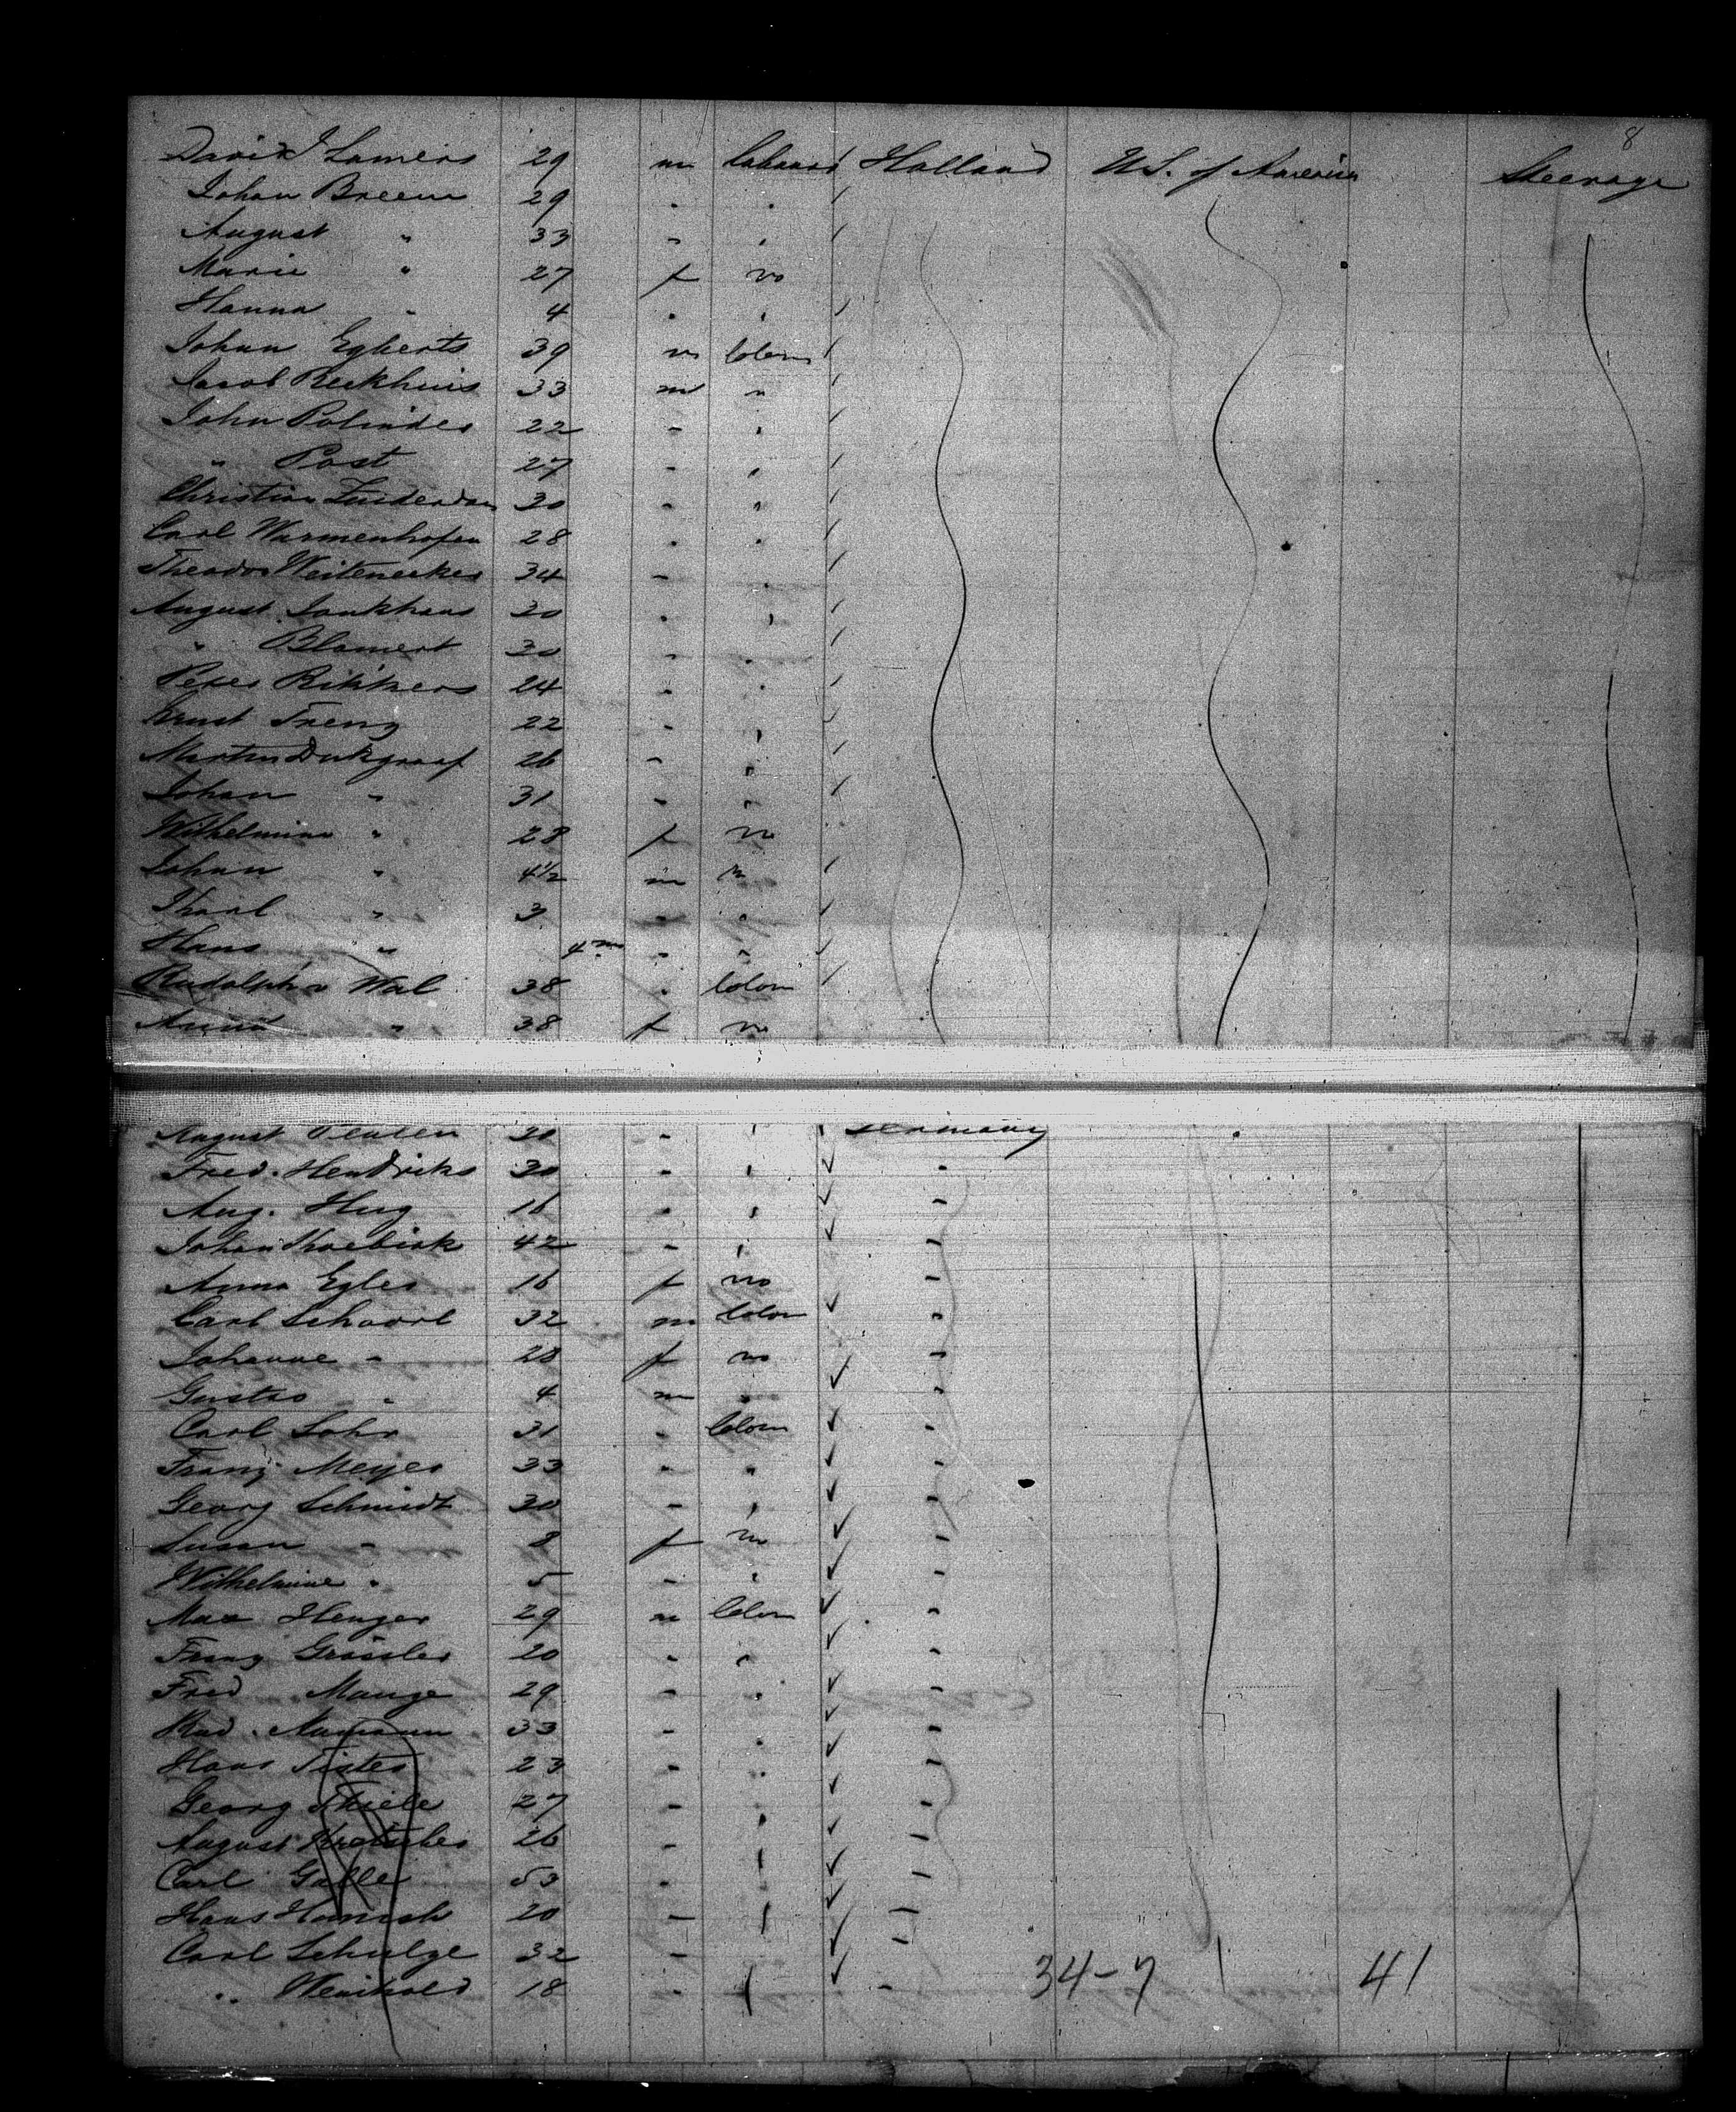 8
David J Lamers 29 m Labourer Holland U.S. of America Steerage
Johan Breem 29 " "
August " 33 " "
Marie " 27 f no
Hanna " 4 " "
Johan Egberts 39 m labour
Jacob Beekhuis 33 m "
John Polinder 22 " "
" Post 27 " "
Christian 30 " "
Carl Warmenhofen 28 " "
Theodor 34 " "
August Jonkhans 20 " "
" Blamert 30 " "
Peter Rikkers 24 " "
Ernst Freng 22 " "
Martin Dukgraaf 26 " "
Johan " 31 " "
Wilhelmina " 28 f no
Johan " 4½ m n
Karl " 3 " "
Hans " 4 m " "
Rudolph Wal 38 " labour
Anna " 38 f no
August " " Germany
Fred. Hendriks 30 " " "
Aug. Hug 16 " " "
Johan 42 " " "
Anna Egler 16 f no "
Carl Schaarl 32 m labour "
Johanne " 28 f no "
Gustav " 4 m " "
Carl Lohr 31 " labour "
Franz Meyer 33 " " "
Georg Schmidt 30 " " "
Susan " 8 f no "
Wilhelmine " 5 " " "
Max Henger 29 m labour "
Franz 20 " " "
Fred Mange 29 " " "
Rud. Naumann 33 " " "
Hans Tister 23 " " "
Georg Thiele 27 " " "
August 26 " " "
Carl Galle 53 " " "
Hans Hanish 20 " " "
Carl Schulze 32 " " "
" 18 " " " 34-7 41